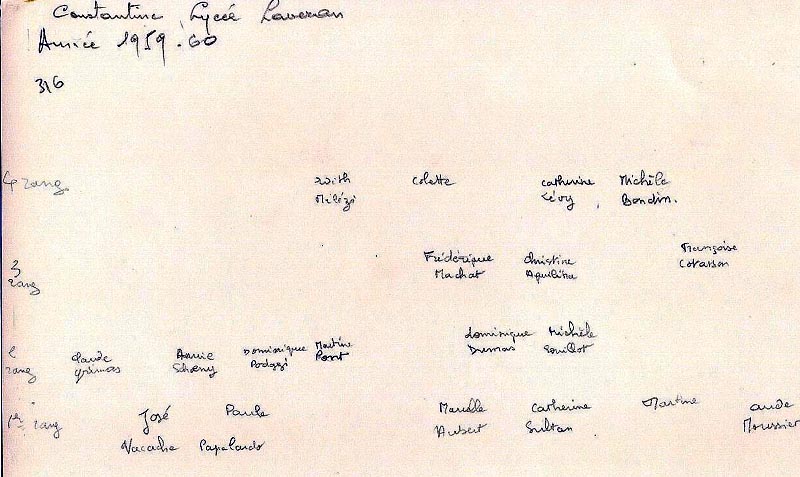 Constantine, Lycée Laveran
Année 1959-60
316
4 rang. Colette Catherine Michèle
Milézi Lévy, Bondin.
3 Frédérique Christine Françoise
rang Machat Aquilina
2 Claude Annie Dominique Martine Dominique Michèle
rang Pont Dumas Souillot
1er rang José Paule Marielle Catherine Martine Aude
Vacache Papalardo Aubert Sultan Moussier